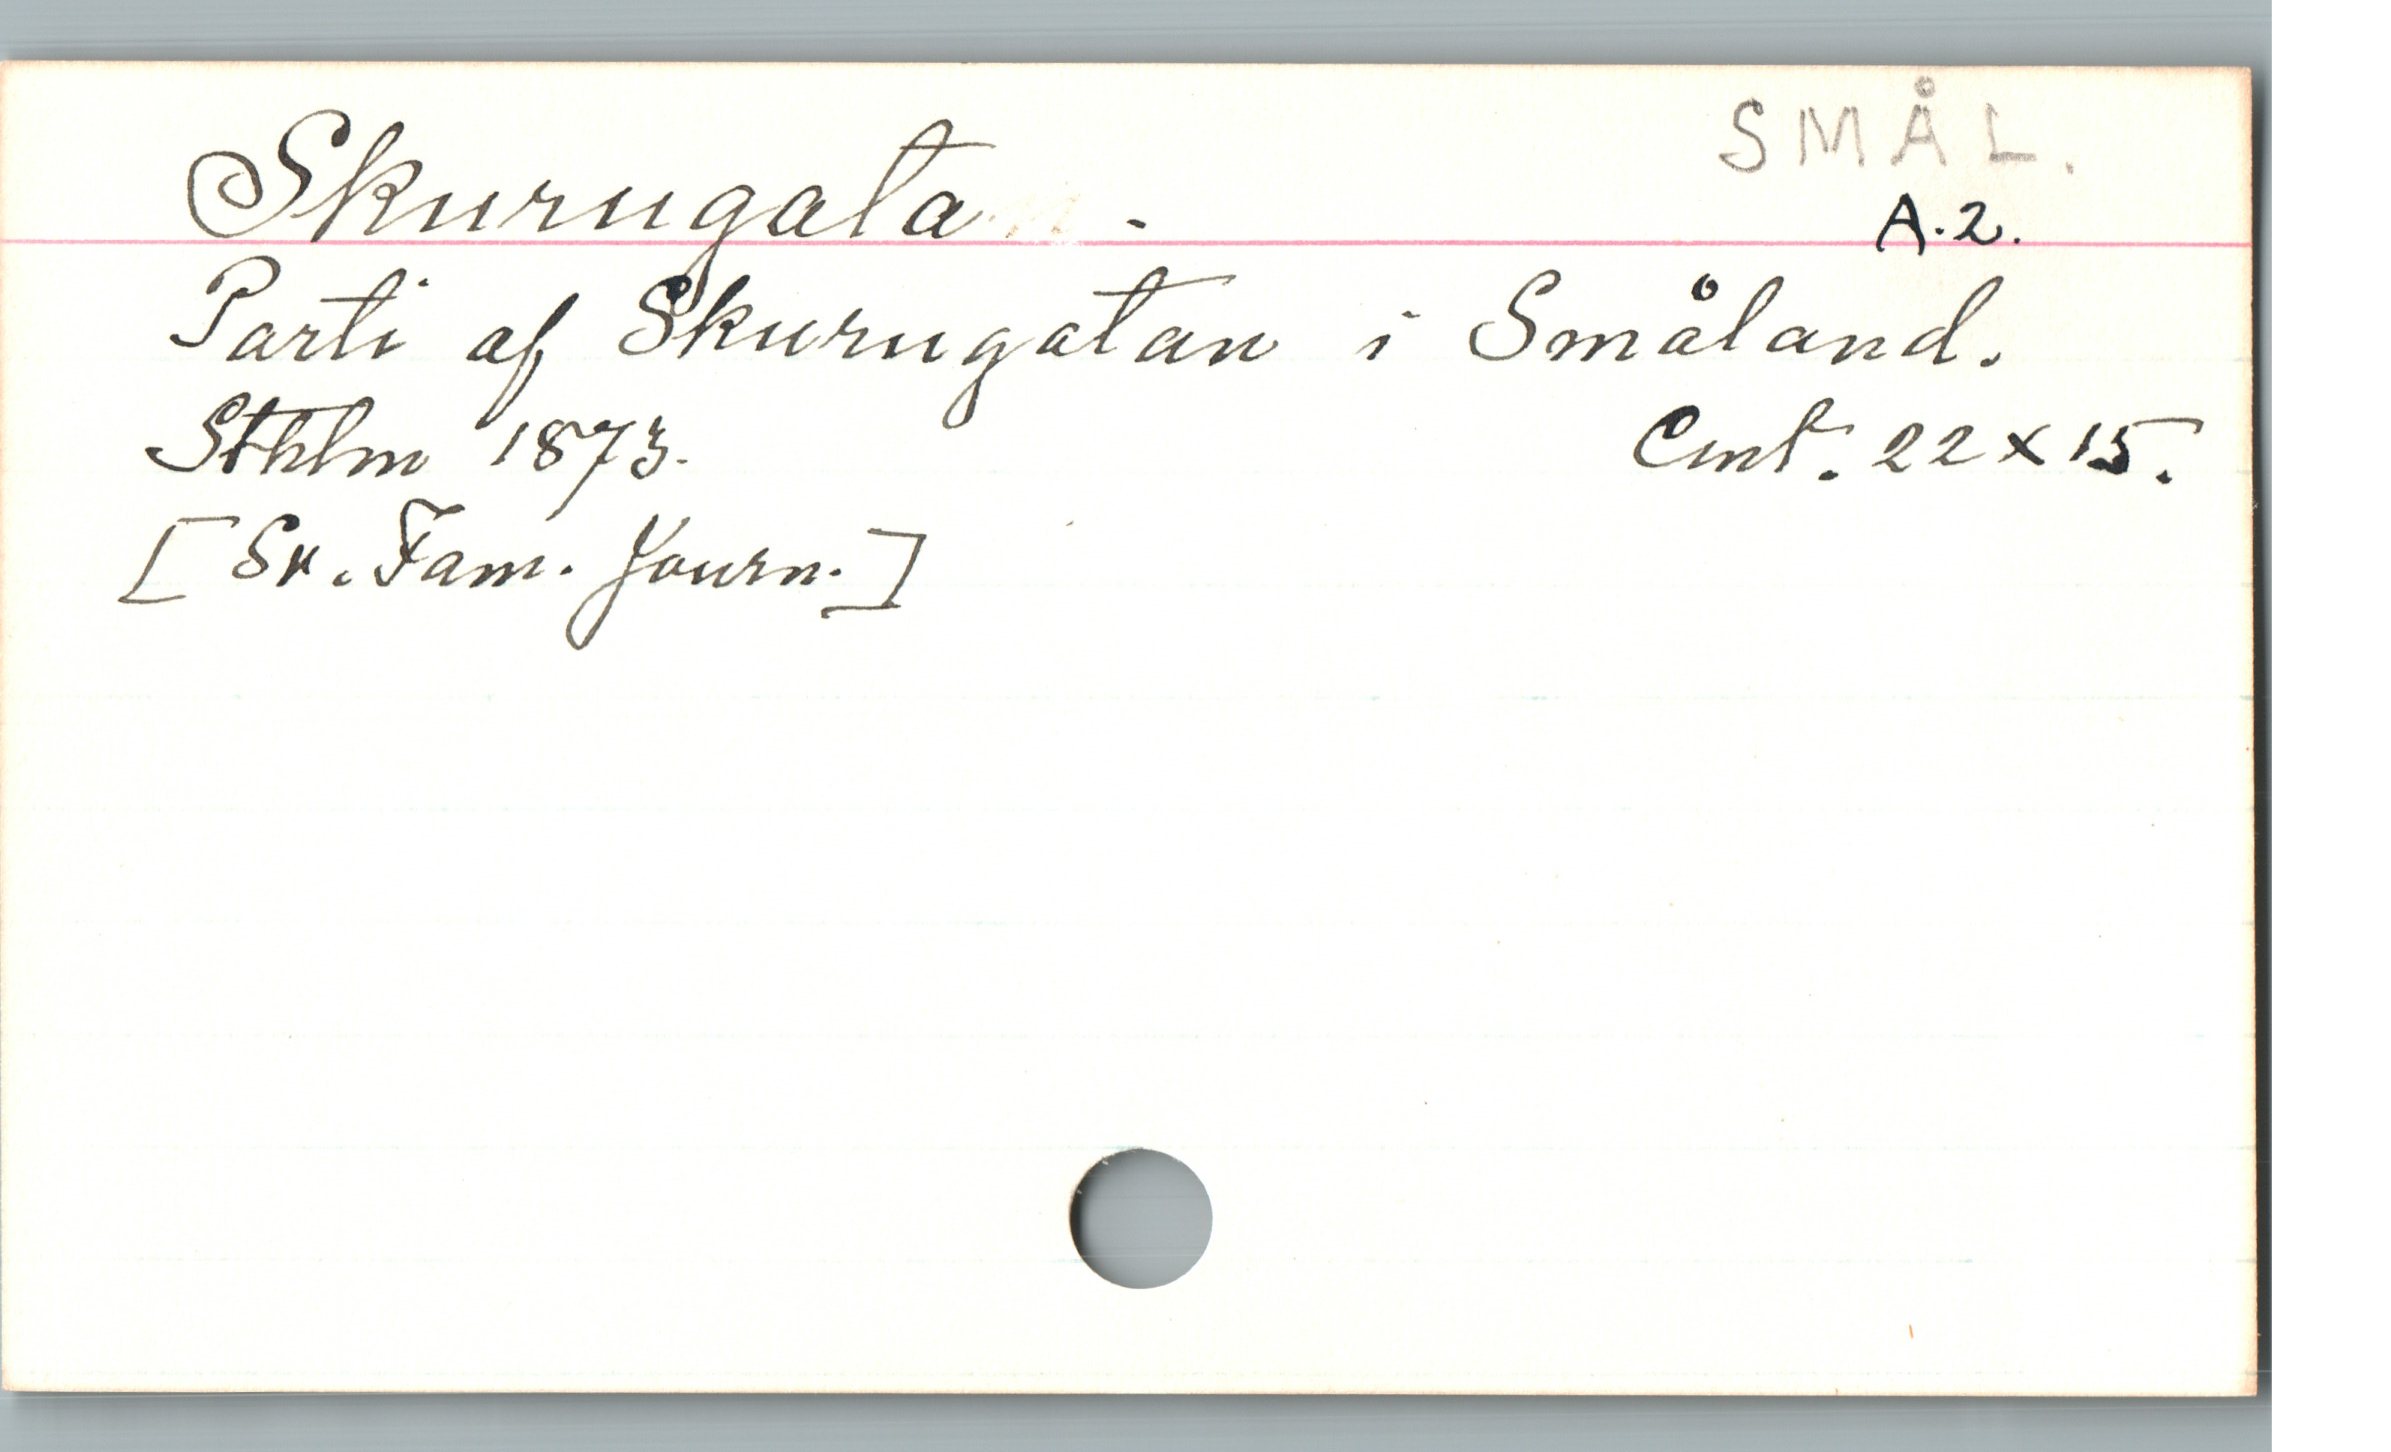 SMÅL.
Skurugata -
A.2.
Parti af Skurugatan i Småland.
Sthlm 1873. Cmt. 22 x 15.
[Sv. Fam. Journ.]